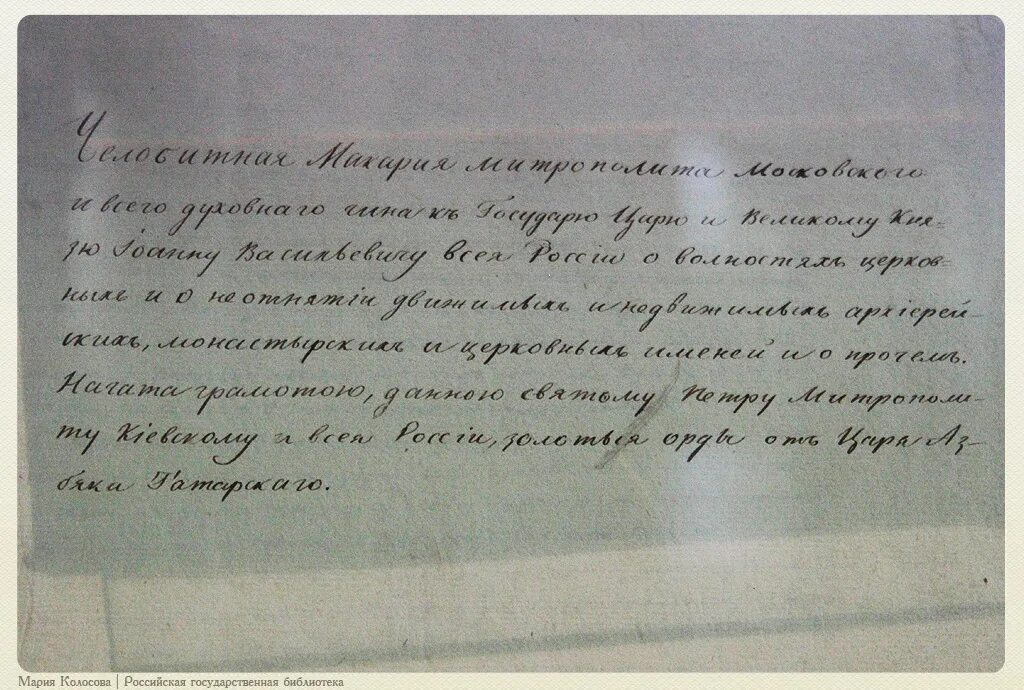 Челобитная Макария митрополита Московского
и всего духовнаго чина къ Государю Царю и Великому Кня=
зю Іоанну Васильевичу всея Россіи о волностяхъ церков=
ныхъ и о неотнятіи движимыхъ и недвижимыхъ архіерей-
скихъ, монастырскихъ и церковныхъ именей и о прочемъ.
Начата грамотою, данною святому Петру Митрополи-
ту Кіевскому и всея Россіи, золотыя орды отъ Царя Аз-
бяка Татарскаго.
Мария Колосова | Российская государственная библиотека